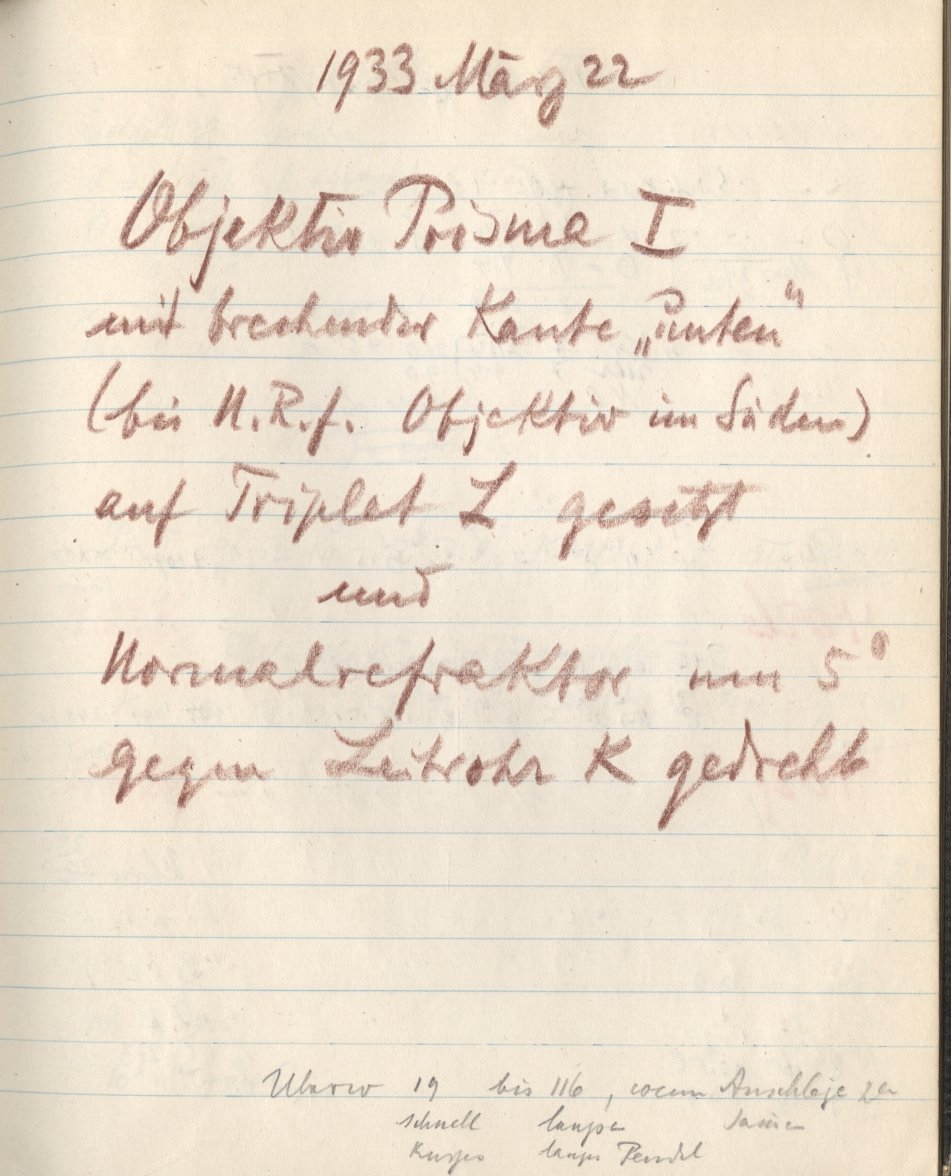 1933 März 22
Objektiv Prisma I
mit brechender Kante „unten“
(bei N.R.f. Objektiv im Süden)
auf Triplet L gesetzt
und
Normalrefraktor um 5°
gegen Leitrohr K gedreht
19 bis 116, wenn Anschläge zu
schnell
Kurzes langes Pendel